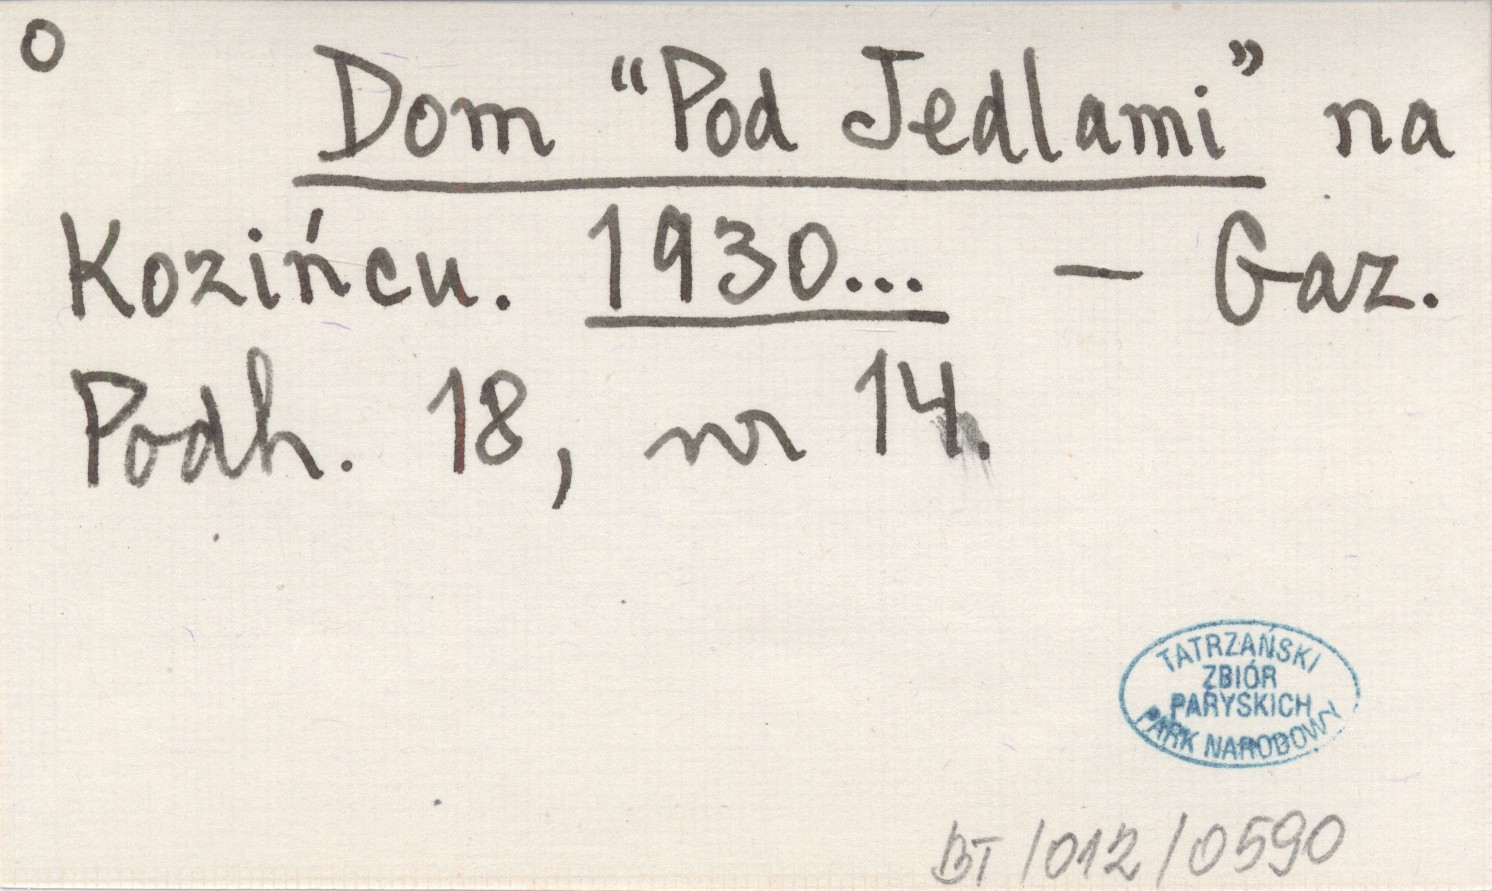 o
Dom “Pod Jedlami” na
Kozińcu. 1930... — Gaz.
Podh. 18, nr 14.
TATRZAŃSKI
ZBIÓR
PARYSKICH
PARK NARODOWY
BT/012/0590